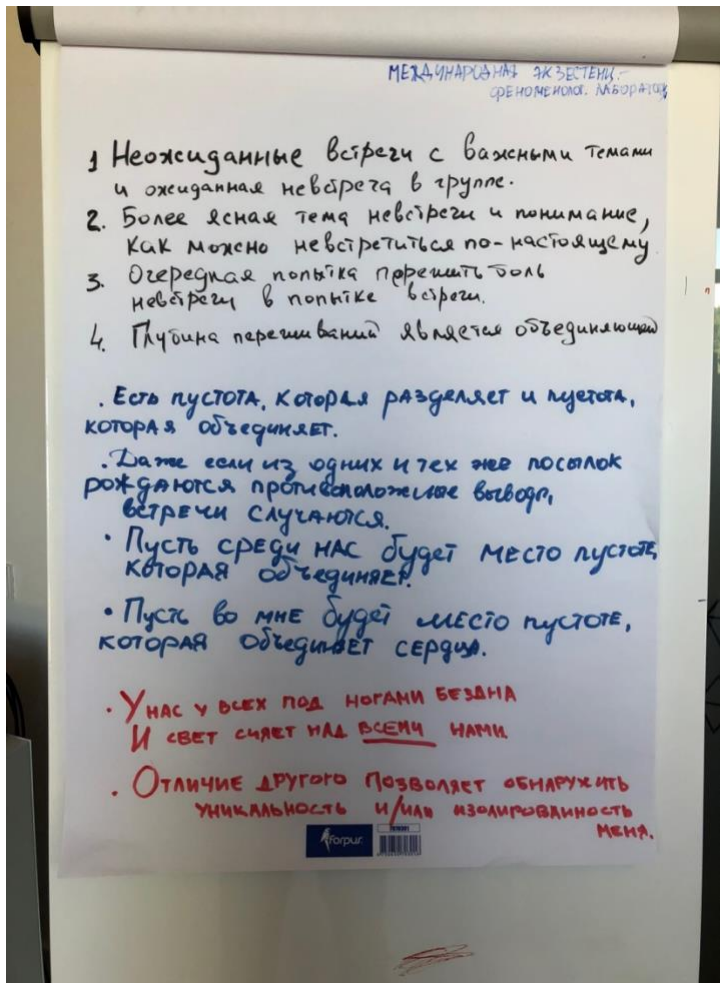 МЕЖДУНАРОДНАЯ ЭКЗЕСТЕНЦ.-
ФЕНОМЕНОЛОГ. ЛАБОРАТОРИЯ
1 Неожиданные встречи с важными темами
и ожиданная невстреча в группе.
2. Более ясная тема невстречи и понимание,
как можно невстретиться по-настоящему
3. Очередная попытка пережить боль
невстречи в попытке встречи.
4. Глубина переживаний является объединяющей
. Есть пустота, которая разделяет и пустота,
которая объединяет.
. Даже если из одних и тех же посылок
рождаются противоположные выводы,
встречи случаются.
• Пусть среди нас будет место пустоте,
которая объединяет.
• Пусть во мне будет место пустоте,
которая объединяет сердца.
• У нас у всех под ногами бездна
И свет сияет над всеми нами.
. Отличие другого позволяет обнаружить
уникальность и/или изолированность
меня.
forpus